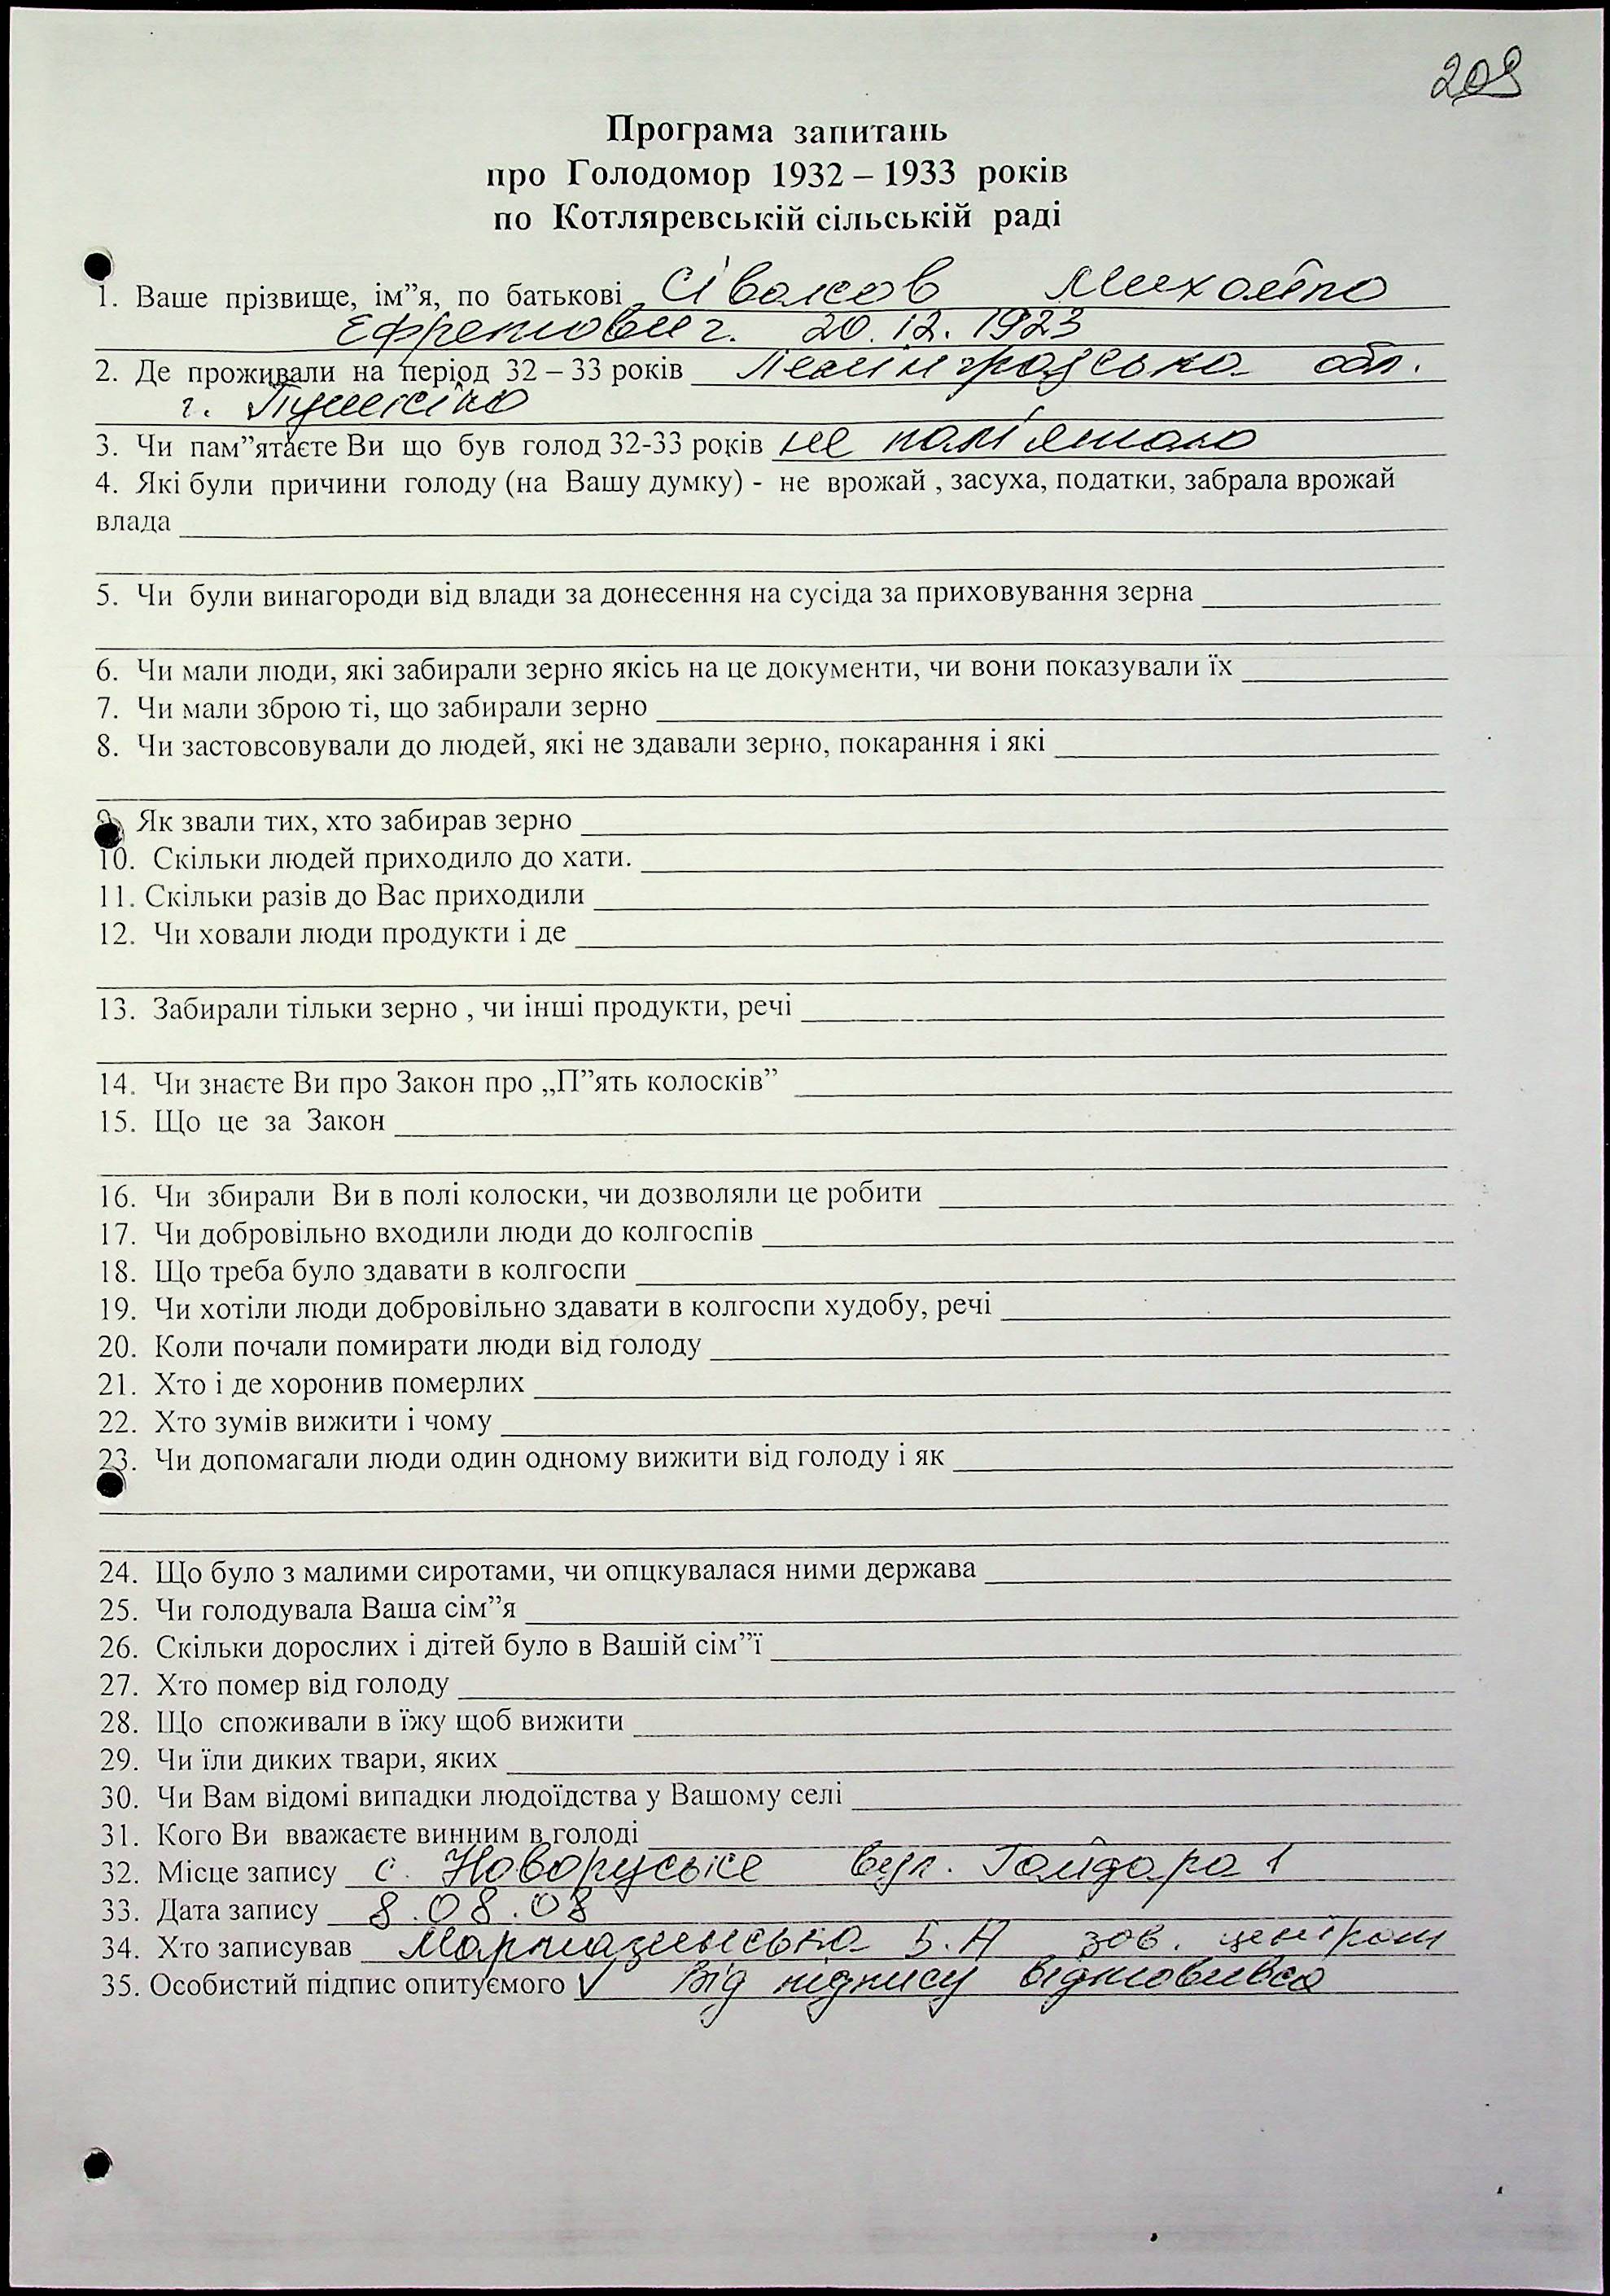 209
Програма запитань
про Голодомор 1932 – 1933 років
по Котляревській сільській раді
1. Ваше прізвище, ім"я, по батькові Сіваков Михайло
20.12.1923
2. Де проживали на період 32 – 33 років Ленінградська обл.
г. Пушкіно
3. Чи пам"ятаєте Ви що був голод 32-33 років не пам'ятаю
4. Які були причини голоду (на Вашу думку) - не врожай , засуха, податки, забрала врожай
влада
5. Чи були винагороди від влади за донесення на сусіда за приховування зерна
6. Чи мали люди, які забирали зерно якісь на це документи, чи вони показували їх
7. Чи мали зброю ті, що забирали зерно
8. Чи застовсовували до людей, які не здавали зерно, покарання і які
9. Як звали тих, хто забирав зерно
10. Скільки людей приходило до хати.
11. Скільки разів до Вас приходили
12. Чи ховали люди продукти і де
13. Забирали тільки зерно , чи інші продукти, речі
14. Чи знаєте Ви про Закон про „П"ять колосків"
15. Що це за Закон
16. Чи збирали Ви в полі колоски, чи дозволяли це робити
17. Чи добровільно входили люди до колгоспів
18. Що треба було здавати в колгоспи
19. Чи хотіли люди добровільно здавати в колгоспи худобу, речі
20. Коли почали помирати люди від голоду
21. Хто і де хоронив померлих
22. Хто зумів вижити і чому
23. Чи допомагали люди один одному вижити від голоду і як
24. Що було з малими сиротами, чи опцкувалася ними держава
25. Чи голодувала Ваша сім"я
26. Скільки дорослих і дітей було в Вашій сім"ї
27. Хто помер від голоду
28. Що споживали в їжу щоб вижити
29. Чи їли диких твари, яких
30. Чи Вам відомі випадки людоїдства у Вашому селі
31. Кого Ви вважаєте винним в голоді
32. Місце запису с. Новоруське вул. Гайдара 1
33. Дата запису 8.08.08
34. Хто записував зав. центром
35. Особистий підпис опитуємого V Від підпису відмовився